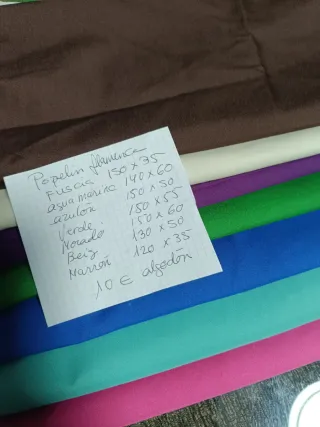 Popelín flamenca
Fuscia 150 x 35
aguamarina 140 x 60
azulón 150 x 50
Verde 150 x 55
Morado 150 x 60
Beiz 130 x 50
Marrón 120 x 35
10 € algodón